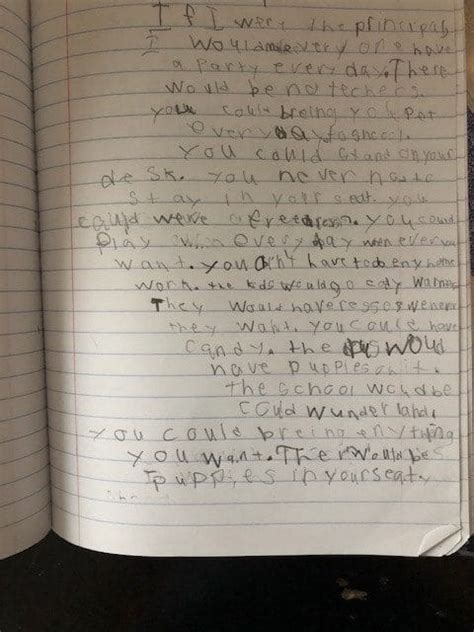 If I were the principal,
I would make every one have
a Party every day. There
would be no techers.
you could breing your Pet
every day to shcool.
you could stand on your
desk. you never haste
stay in your seat. you
could were a free dress. you could
Play when ever you
want. you don't have to do eny home
work. the kids would go
They would have ressos wenever
they want. you could have
candy. the would
have puppies on it.
the school would be
could wunderland.
you could breing enything
you want. Ther would be
puppies in your seat.